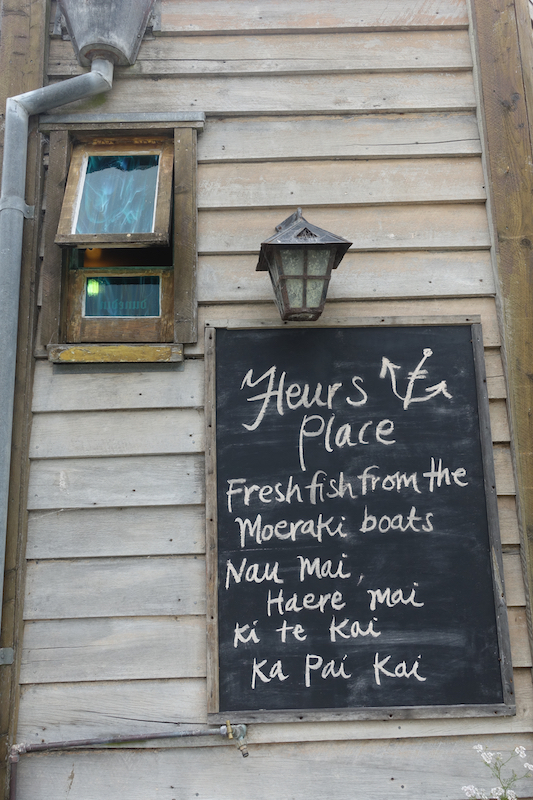 Fleurs
Place
Fresh fish from the
Moeraki boats
Nau mai,
Haere mai
ki te Kai
Ka Pai Kai